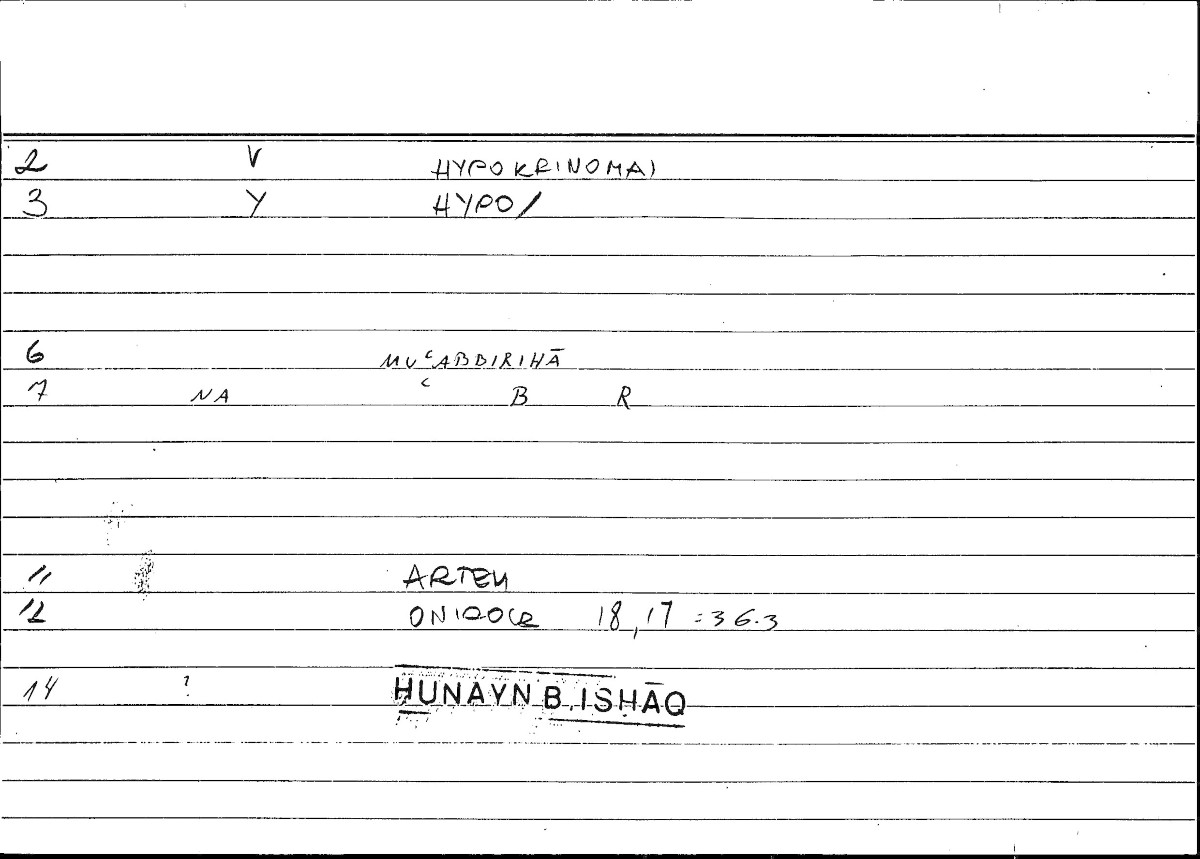 2 V HYPOKRINOMAI
3 Y HYPO/
6 MUʿABBIRIHĀ
7 NA ʿ B R
11 ARTEM
12 ONIROCR 18,17 =36.3
14 ? ḤUNAYN B. ISḤĀQ